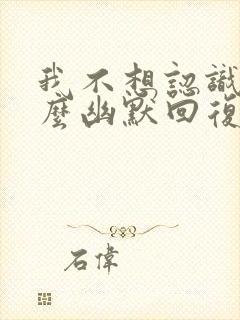 我不想認識
麼幽默回復
石偉